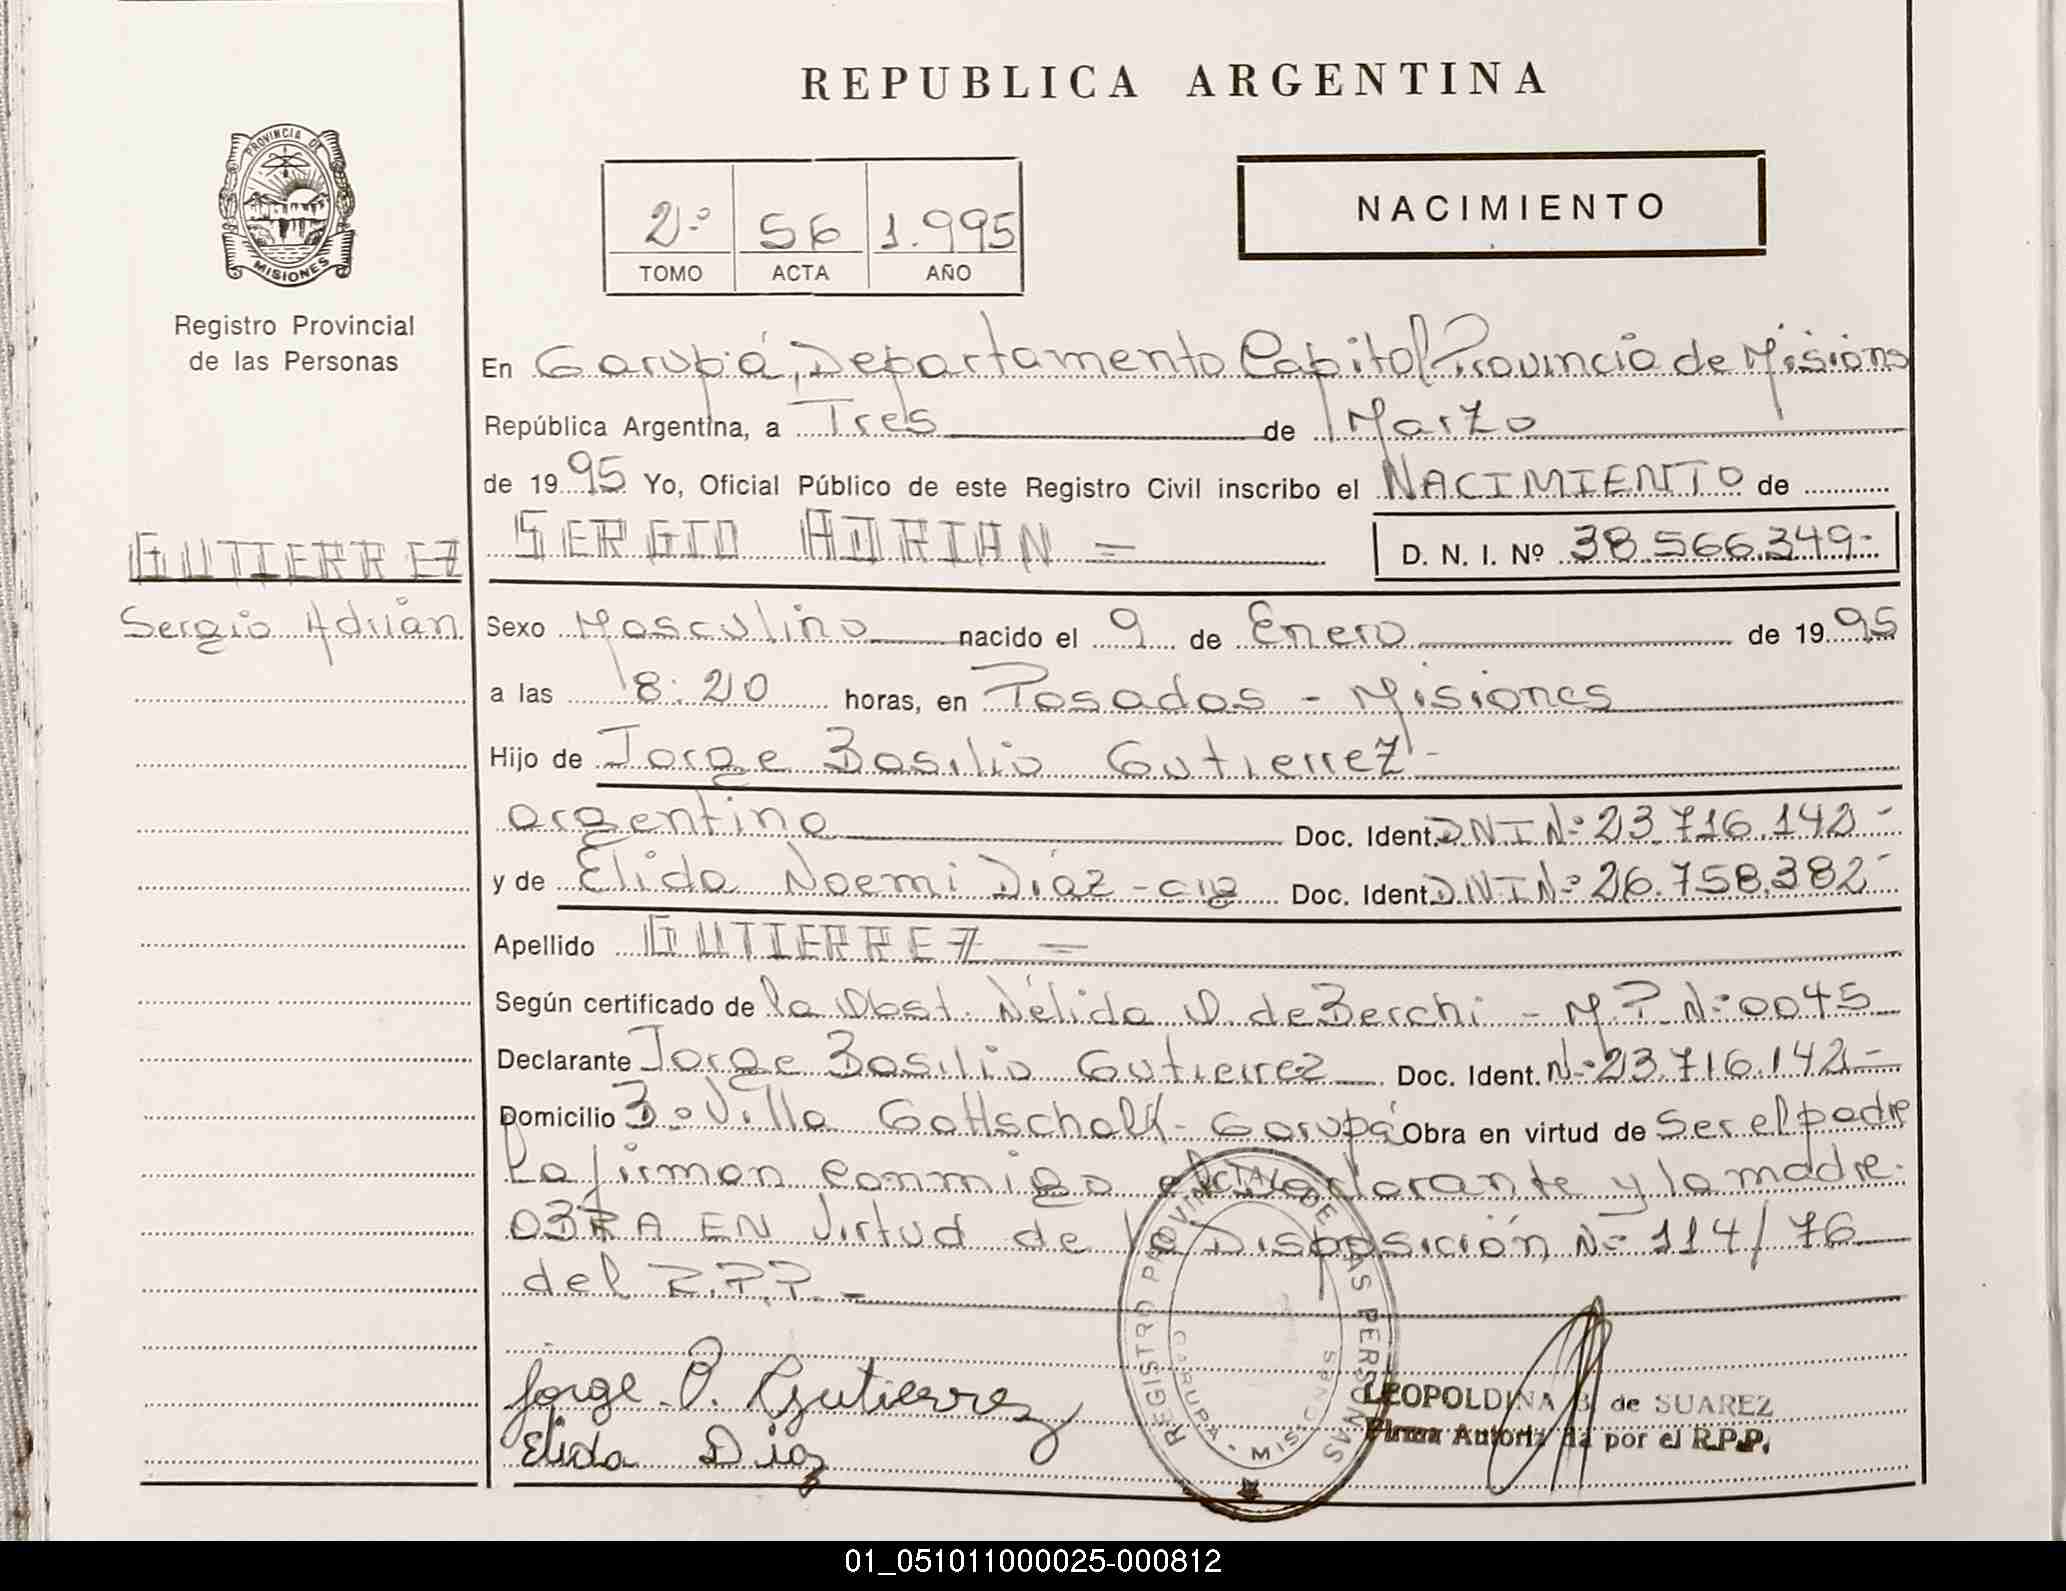 REPUBLICA ARGENTINA
PROVINCIA DE
MISIONES
Registro Provincial
de las Personas
2º 56 1.995
TOMO ACTA AÑO
NACIMIENTO
En Garupá, Departamento Capital Provincia de Misiones
República Argentina, a Tres de Marzo
de 1995 Yo, Oficial Público de este Registro Civil inscribo el NACIMIENTO de
GUTIERREZ
Sergio Adrián
SERGIO ADRIAN =
D. N. I. Nº 38.566.349-
Sexo Masculino nacido el 9 de Enero de 1995
a las 8:20 horas, en Posadas - Misiones
Hijo de Jorge Basilio Gutierrez -
argentino Doc. Ident. DNI Nº 23.716.142-
y de Elida Noemi Díaz - Doc. Ident. DNI Nº 26.758.382-
Apellido GUTIERREZ =
Según certificado de la Obst. Nélida D. de Berchi - M.P. Nº 0045
Declarante Jorge Basilio Gutierrez Doc. Ident. Nº 23.716.142-
Domicilio Bº Villa Gottschalk - Garupá Obra en virtud de Ser el padre
La firman conmigo el Declarante y la madre.
OBRA EN Virtud de la Disposición Nº 114/76
del R.P.P. -
REGISTRO PROVINCIAL DE LAS PERSONAS
GARUPA - MISIONES
Jorge. O. Gutierrez
Elida Diaz
LEOPOLDINA B de SUAREZ
Firma Autorizada por el R.P.P.
01_051011000025-000812